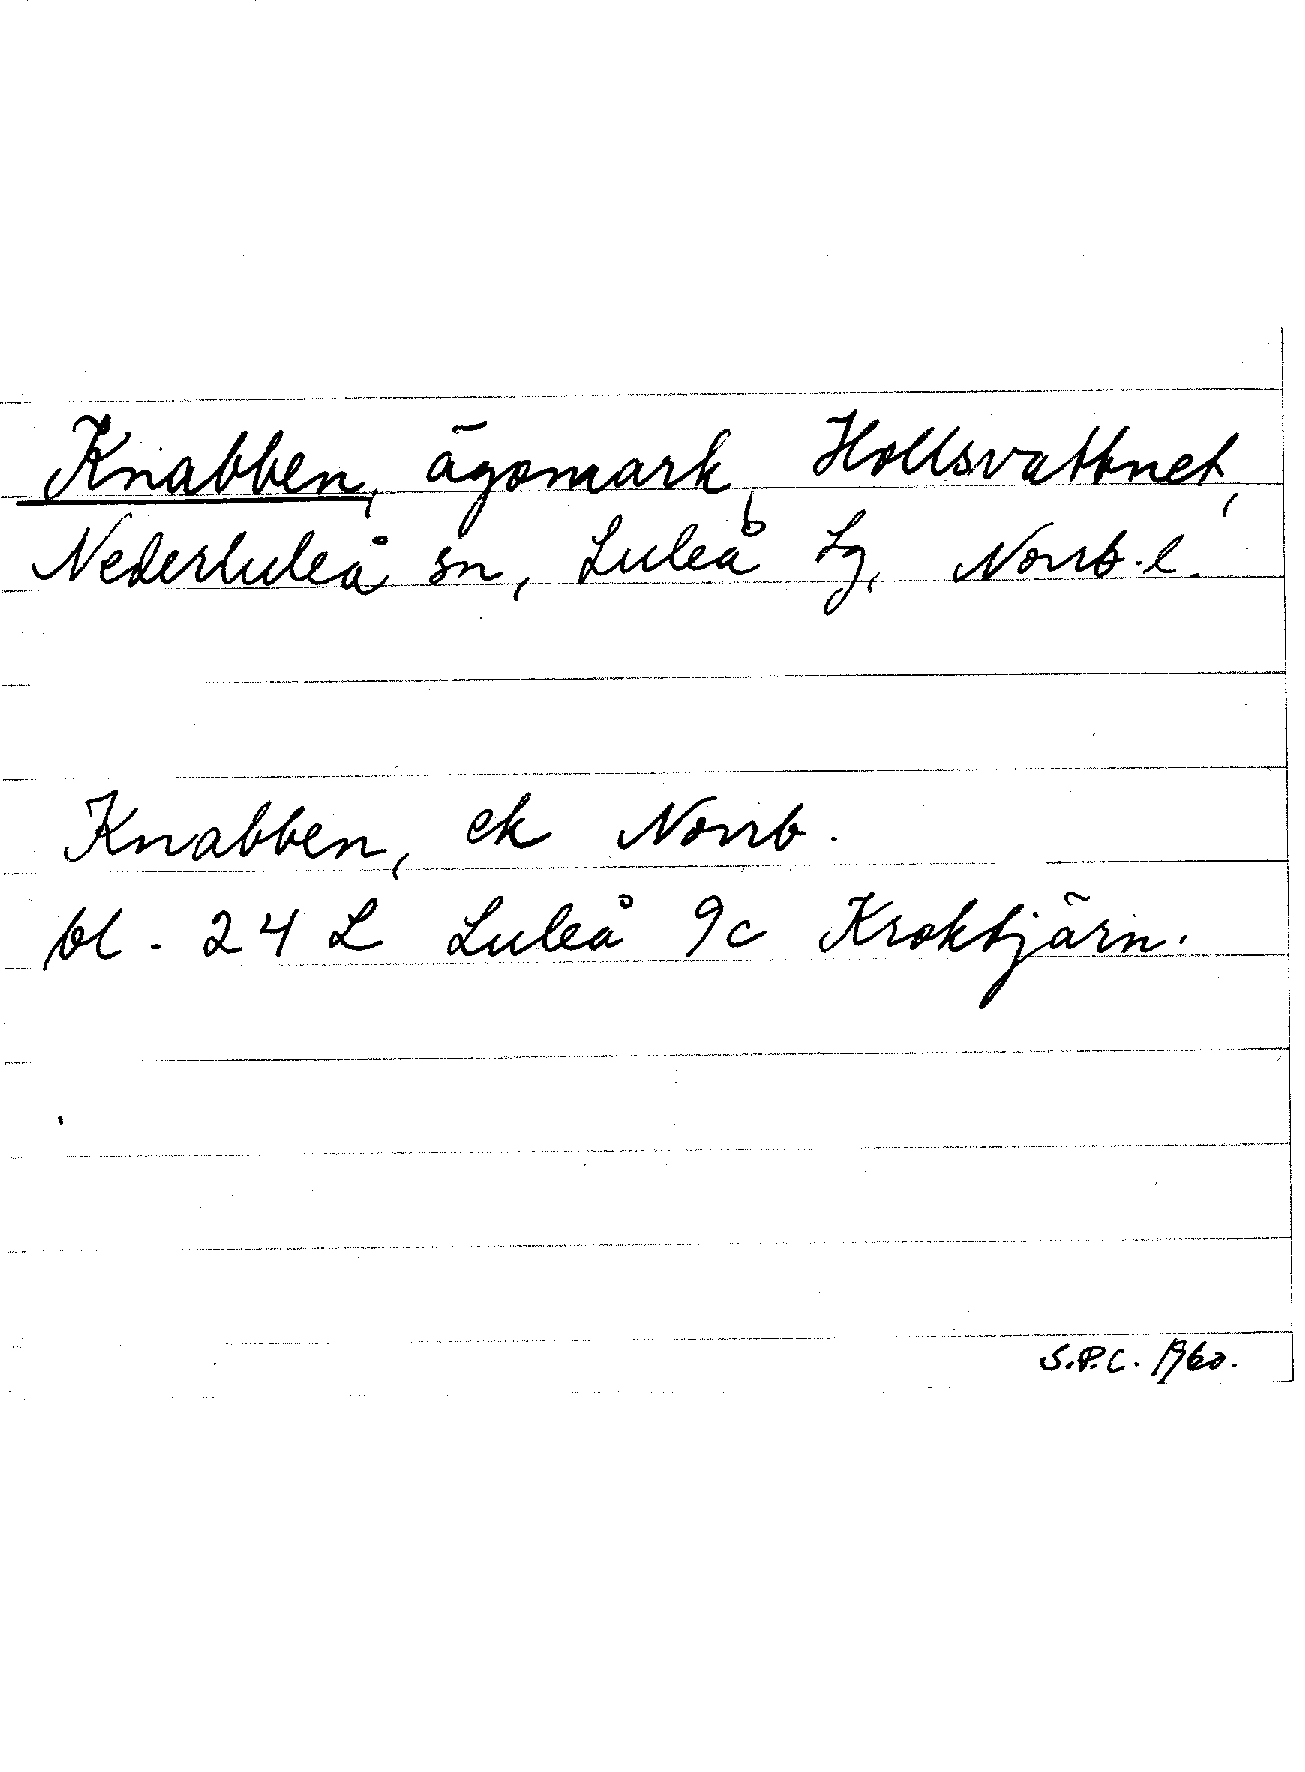 Knabben, ägomark, Hollsvattnet,
Nederluleå sn, Luleå lg, Norrb. l.
Knabben, ek Norrb.
bl. 24 L Luleå 9c Kroktjärn.
S.P.C. 1960.